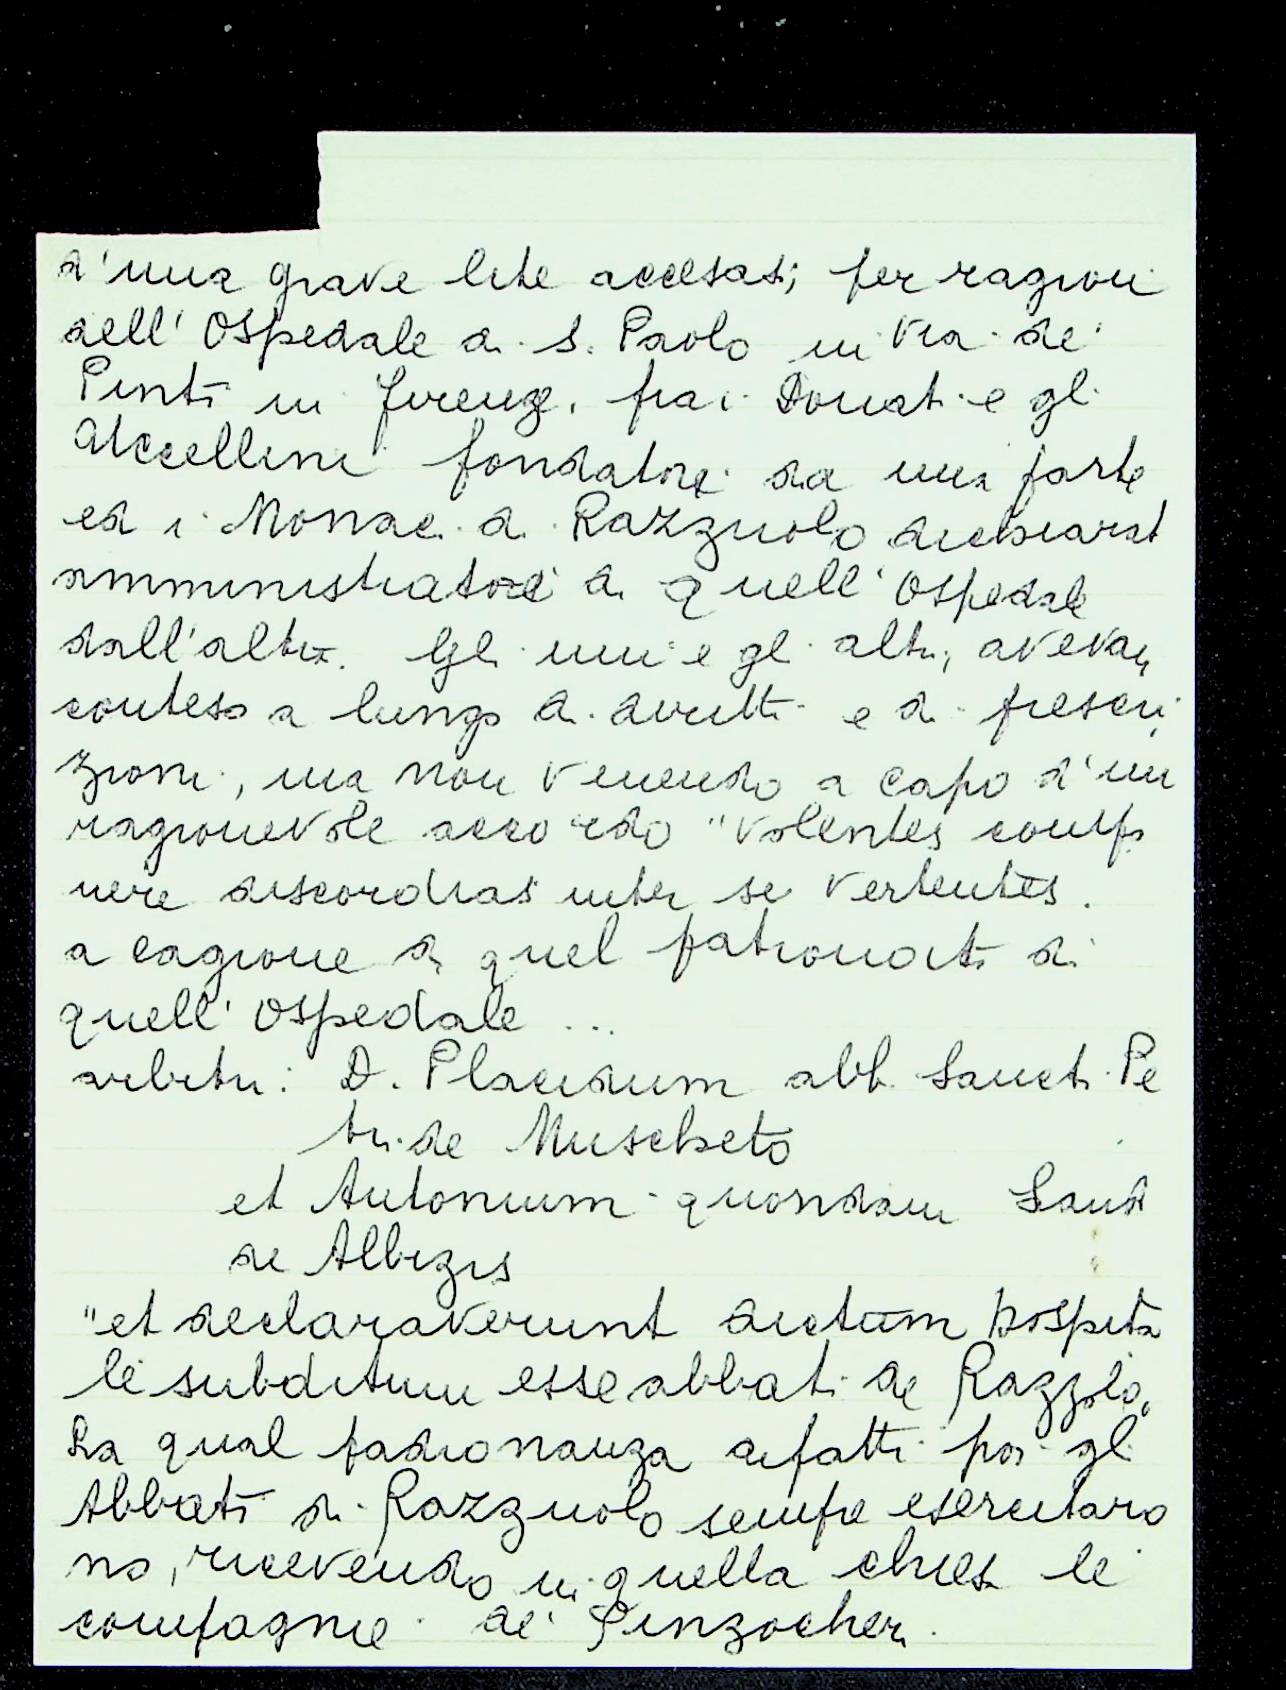 d'una grave lite accesasi; per ragioni
dell' Ospedale di S. Paolo in Via de'
Pinti in Firenze, fra i Donati e gli
Uccellini fondatori da una parte
ed i Monaci di Razzuolo dichiarati
amministratori di quell' Ospedale
dall'altra. Gli uni e gli altri, avevan
conteso a lungo di diritti e di prescri
zioni, ma non venendo a capo d'un
ragionevole accordo "volentes compo
nere discordias inter se vertentes.
a cagione di quel patronato di
quell' Ospedale ...
arbitri: D. Placidum abb. Sancti Pe
tri de Muscheto
et Antonium quondam Landi
de Albizis
"et declaraverunt dictum hospita
le subditum esse abbati de Razzolo,
La qual padronanza difatti poi gli
Abbati di Razzuolo sempre esercitaro
no, ricevendo in quella chiesa le
compagnie de' Pinzocheri.